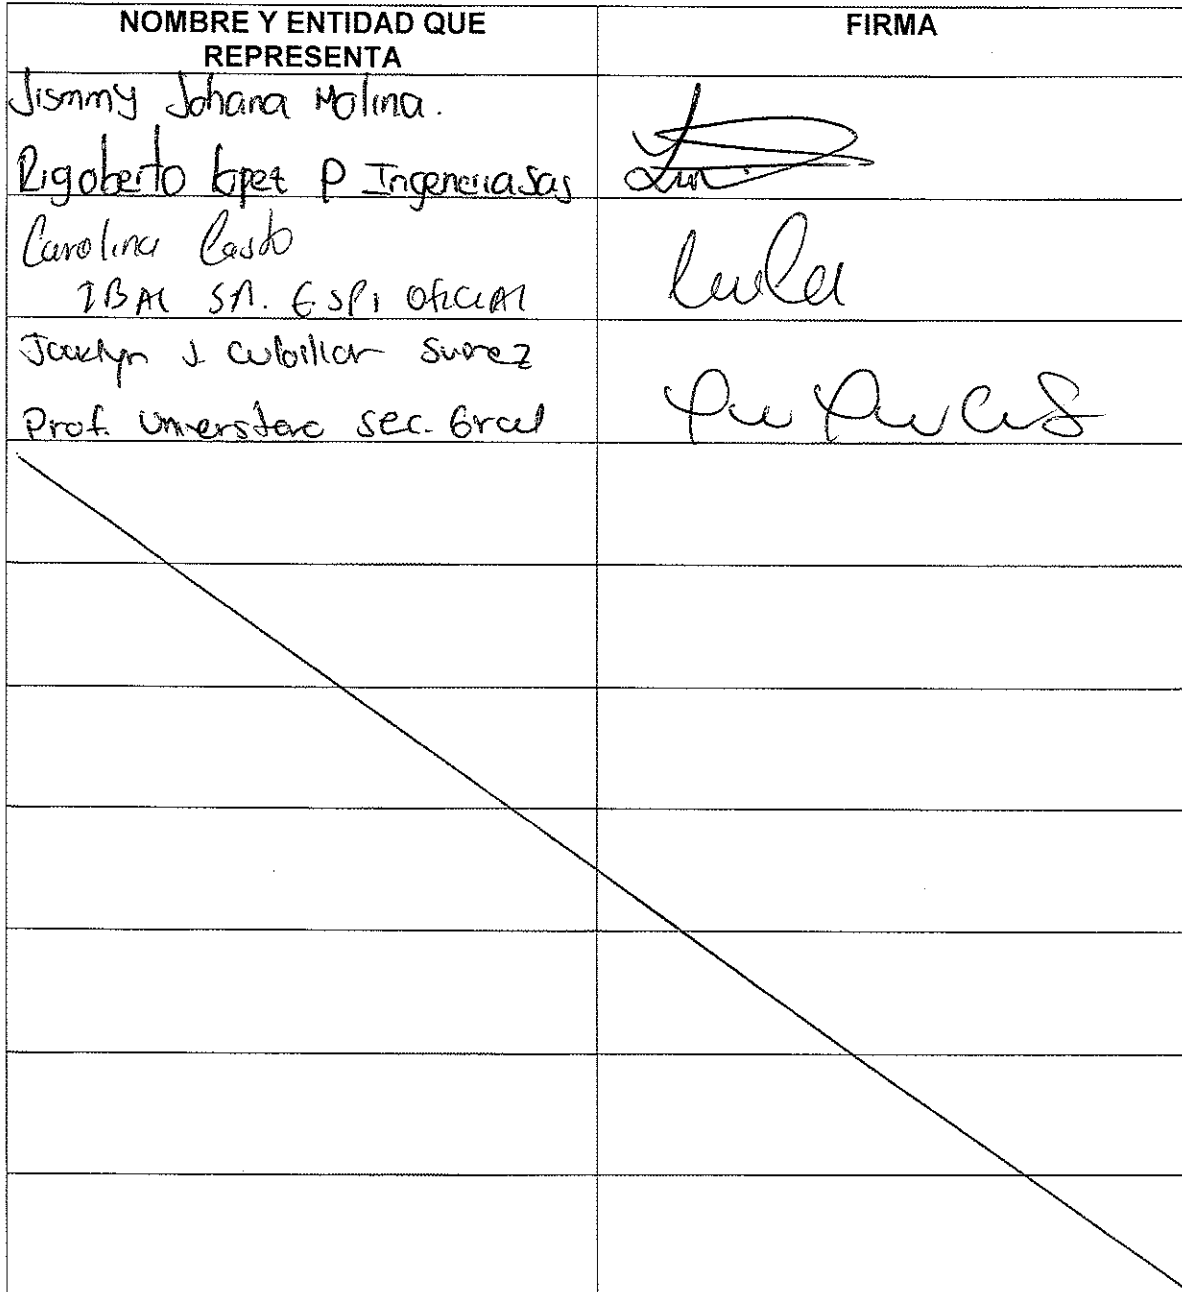 NOMBRE Y ENTIDAD QUE
REPRESENTA
FIRMA
Jismmy Johana Molina.
Rigoberto lopez P Ingenieria Sas
Carolina Casto
IBAL SA. ESP, OFICIAL
J. Cubillor Suarez
Prof. Universitaro Sec. Gral